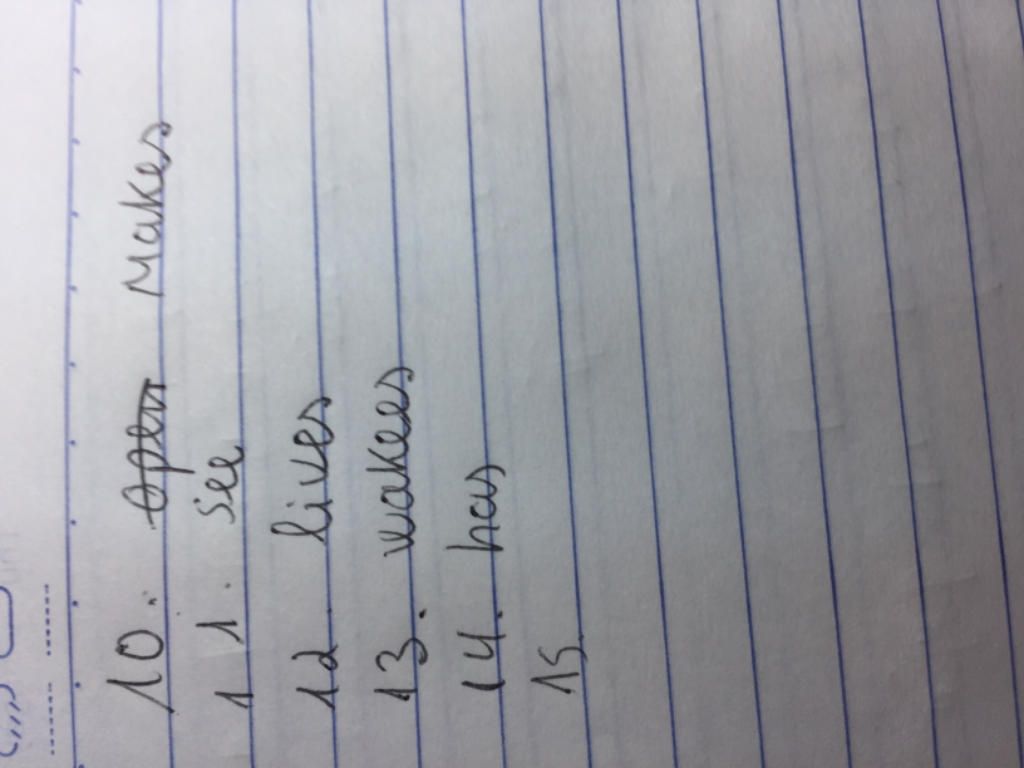 10. Open Makes
11. see
12 lives
13. wakes
14. has
15.